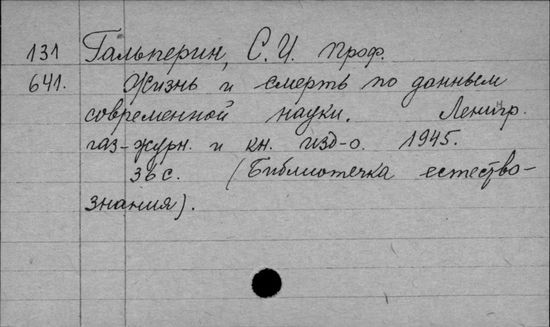 131 Гальперин, С. И. проф.
641. Жизнь и смерть по данным
современной науки. Ленигр.
газ-журн. и кн. изд-о. 1945.
36 с. (Библиотечка естество-
знания).